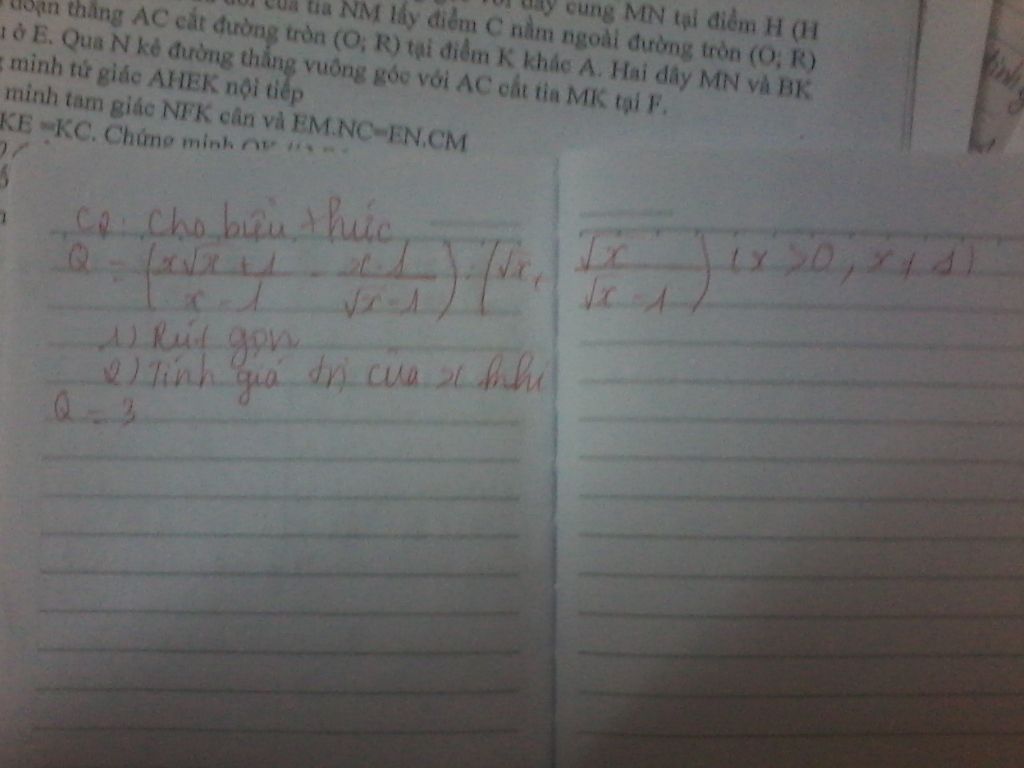 của tia NM lấy điểm C nằm ngoài đường tròn (O; R)
dây cung MN tại điểm H (H
đoạn thẳng AC cắt đường tròn (O; R) tại điểm K khác A. Hai dây MN và BK
ở E. Qua N kẻ đường thẳng vuông góc với AC cắt tia MK tại F.
minh tứ giác AHEK nội tiếp
minh tam giác NFK cân và EM.NC=EN.CM
KE =KC. Chứng minh
C2: Cho biểu thức
Q = (x√x + 1 / x - 1 - x - 1 / √x - 1) : (√x + √x / √x - 1) (x > 0, x ≠ 1)
1) Rút gọn
2) Tính giá trị của x
Q = 3